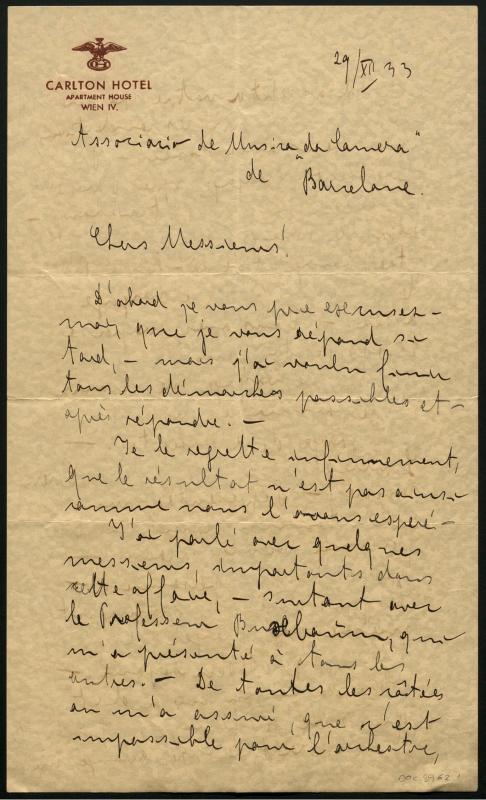 CARLTON HOTEL
APARTMENT HOUSE
WIEN IV.
29/XII 33
Associacio de Musica "da Camera"
de Barcelone.
Chers Messieurs!
D'abord je vous prie excusez-
moi, que je vous répond si
tard, – mais j'ai voulu finir
tous les démarches possibles et
après répondre. –
Je le regrette infiniement,
que le résultat n'est pas ainsi
comme nous l'avons esperé –
J'ai parlé avec quelques
messieurs importants dans
cette affaire, – surtout avec
le Professeur Buxbaum, qui
m'a présenté à tous les
autres. – De toutes les côtées
on m'a assuré, que c'est
impossible pour l'orchestre,
DOC. 8962